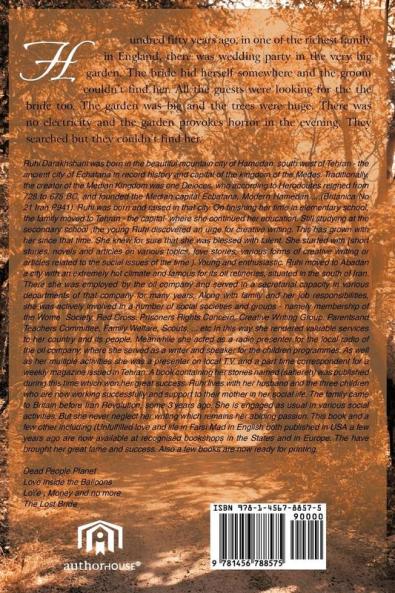 Hundred fifty years ago, in one of the richest family
in England, there was wedding party in the very big
garden. The bride hid herself somewhere and the groom
couldn't find her. All the guests were looking for the the
bride too. The garden was big and the trees were huge. There was
no electricity and the garden provokes horror in the evening. They
searched but they couldn't find her.
Ruhi Darakhshani was born in the beautiful mountain city of Hamedan, south west of Tehran - the
ancient city of Echatana in record history and capital of the kingdom of the Medes. Traditionally,
the creator of the Median Kingdom was one Deioces, who according to Herodoules reigned from
728 to 675 BC, and founded the Median capital Ecbatana, Modern Hamedan ... ; (Britannia No
21 Iran P941). Ruhi was born and raised in that city. On finishing her time in elementary school,
the family moved to Tehran - the capital- where she continued her education. Still studying at the
secondary school ,the young Ruhi discovered an urge for creative writing. This has grown with
her since that time. She knew for sure that she was blessed with talent. She started with (short
stories, novels and articles on various topics, love stories, various forms of creative writing or
articles related to the social issues of the time ). Young and enthusiastic, Ruhi moved to Abadan
a city with an extremely hot climate and famous for its oil refineries, situated in the south of Iran.
There she was employed by the oil company and served in a secretarial capacity in various
departments of that company for many years. Along with family and her job responsibilities,
she was actively involved in a number of social societies and groups - namely membership
of the Wome Society, Red Cross, Prisoners Rights Concern, Creative Writing Group, Parentsand
Teachers Committee, Family Welfare, Scouts, ... etc In this way she rendered valuable services
to her country and its people. Meanwhile she acted as a radio presenter for the local radio of
the oil company, where she served as a writer and speaker for the children programmes. As well
as her multiple activities she was a presenter on local T.V. and a part time correspondent for a
weekly magazine issied in Tehran. A book containing her stories named (safiereh) was published
during this time which won her great success. Ruhi lives with her husband and the three children
who are now working successfully and support to their mother in her social life. The family came
to Britain before Iran Revolution, some 3 years ago. She is engaged as usual in various social
activities. But she never neglect her writing which remains her abiding passion. This book and a
few other including (Unfulfilled love and life in Farsi Mad in English both published in USA a few
years ago are now available at recognised bookshops in the States and in Europe. The have
brought her great fame and success. Also a few books are now ready for printing.
Dead People Planet
Love Inside the Balloons
, Money and no more
The Lost Bride
authorHOUSE®
ISBN 978-1-4567-8857-5
90000
9 781456 788575